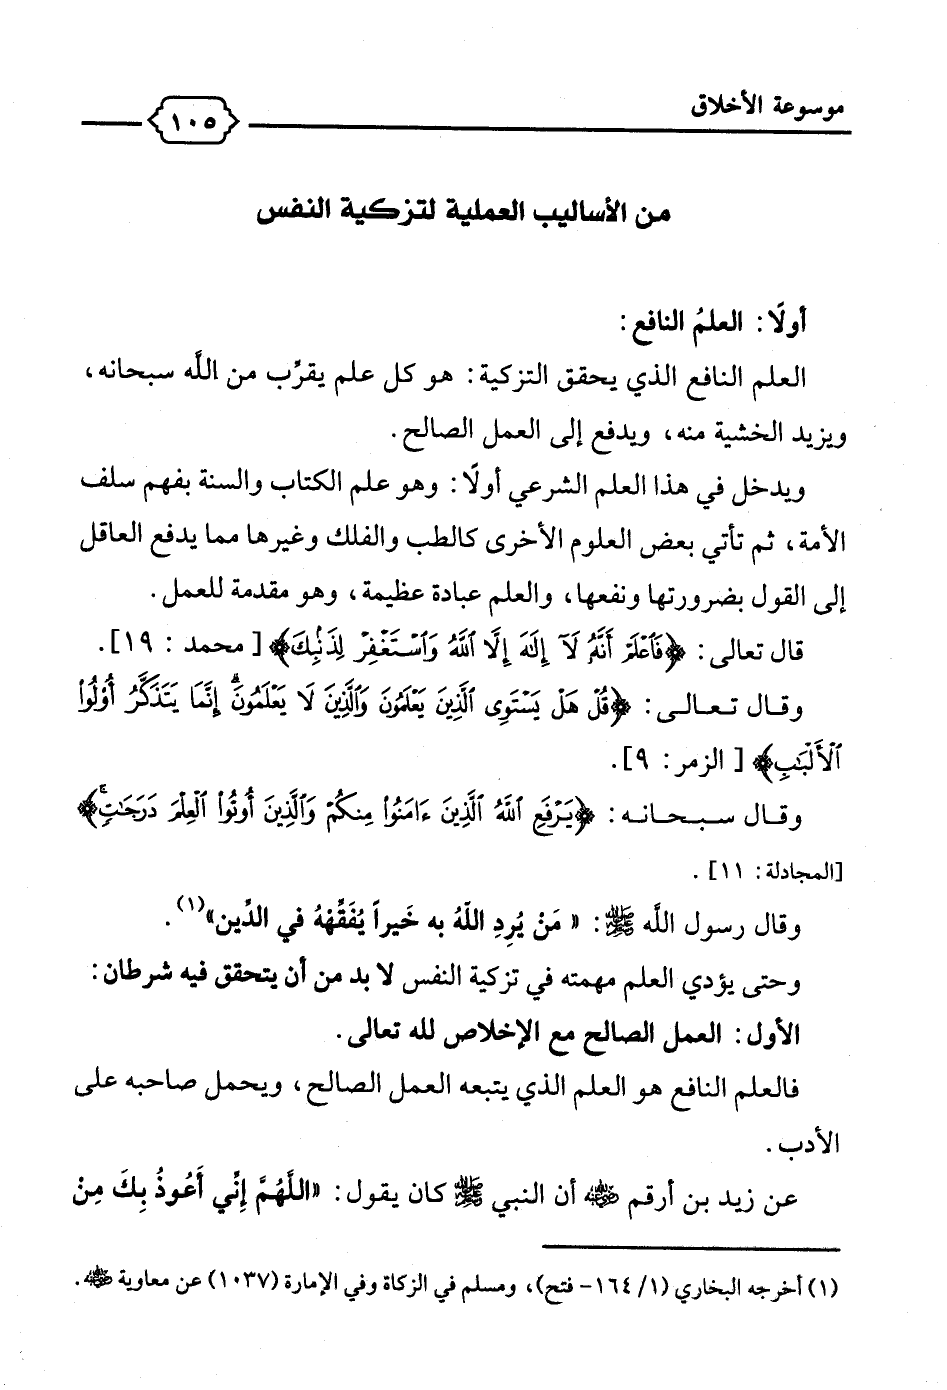 موسوعة الأخلاق
١٠٥
من الأساليب العملية لتزكية النفس
أولًا: العلمُ النافع:
العلم النافع الذي يحقق التزكية: هو كل علم يقرِّب من اللَّه سبحانه،
ويزيد الخشية منه، ويدفع إلى العمل الصالح.
ويدخل في هذا العلم الشرعي أولًا: وهو علم الكتاب والسنة بفهم سلف
الأمة، ثم تأتي بعض العلوم الأخرى كالطب والفلك وغيرها مما يدفع العاقل
إلى القول بضرورتها ونفعها، والعلم عبادة عظيمة، وهو مقدمة للعمل.
قال تعالى: ﴿فَٱعْلَمْ أَنَّهُۥ لَآ إِلَٰهَ إِلَّا ٱللَّهُ وَٱسْتَغْفِرْ لِذَنۢبِكَ﴾ [محمد : ١٩].
وقال تعالى: ﴿قُلْ هَلْ يَسْتَوِى ٱلَّذِينَ يَعْلَمُونَ وَٱلَّذِينَ لَا يَعْلَمُونَۗ إِنَّمَا يَتَذَكَّرُ أُو۟لُوا۟
ٱلْأَلْبَٰبِ﴾ [الزمر: ٩].
وقال سبحانه: ﴿يَرْفَعِ ٱللَّهُ ٱلَّذِينَ ءَامَنُوا۟ مِنكُمْ وَٱلَّذِينَ أُوتُوا۟ ٱلْعِلْمَ دَرَجَٰتٍۚ﴾
[المجادلة: ١١] .
وقال رسول اللَّه ﷺ: « مَنْ يُرِدِ اللَّهُ به خَيراً يُفَقِّهْهُ في الدِّين»(١).
وحتى يؤدي العلم مهمته في تزكية النفس لا بد من أن يتحقق فيه شرطان:
الأول: العمل الصالح مع الإخلاص لله تعالى.
فالعلم النافع هو العلم الذي يتبعه العمل الصالح، ويحمل صاحبه على
الأدب.
عن زيد بن أرقم رضي الله عنه أن النبي ﷺ كان يقول: «اللَّهُمَّ إِنِّي أَعُوذُ بِكَ مِنْ
(١) أخرجه البخاري (١/ ١٦٤- فتح)، ومسلم في الزكاة وفي الإمارة (١٠٣٧) عن معاوية رضي الله عنه.